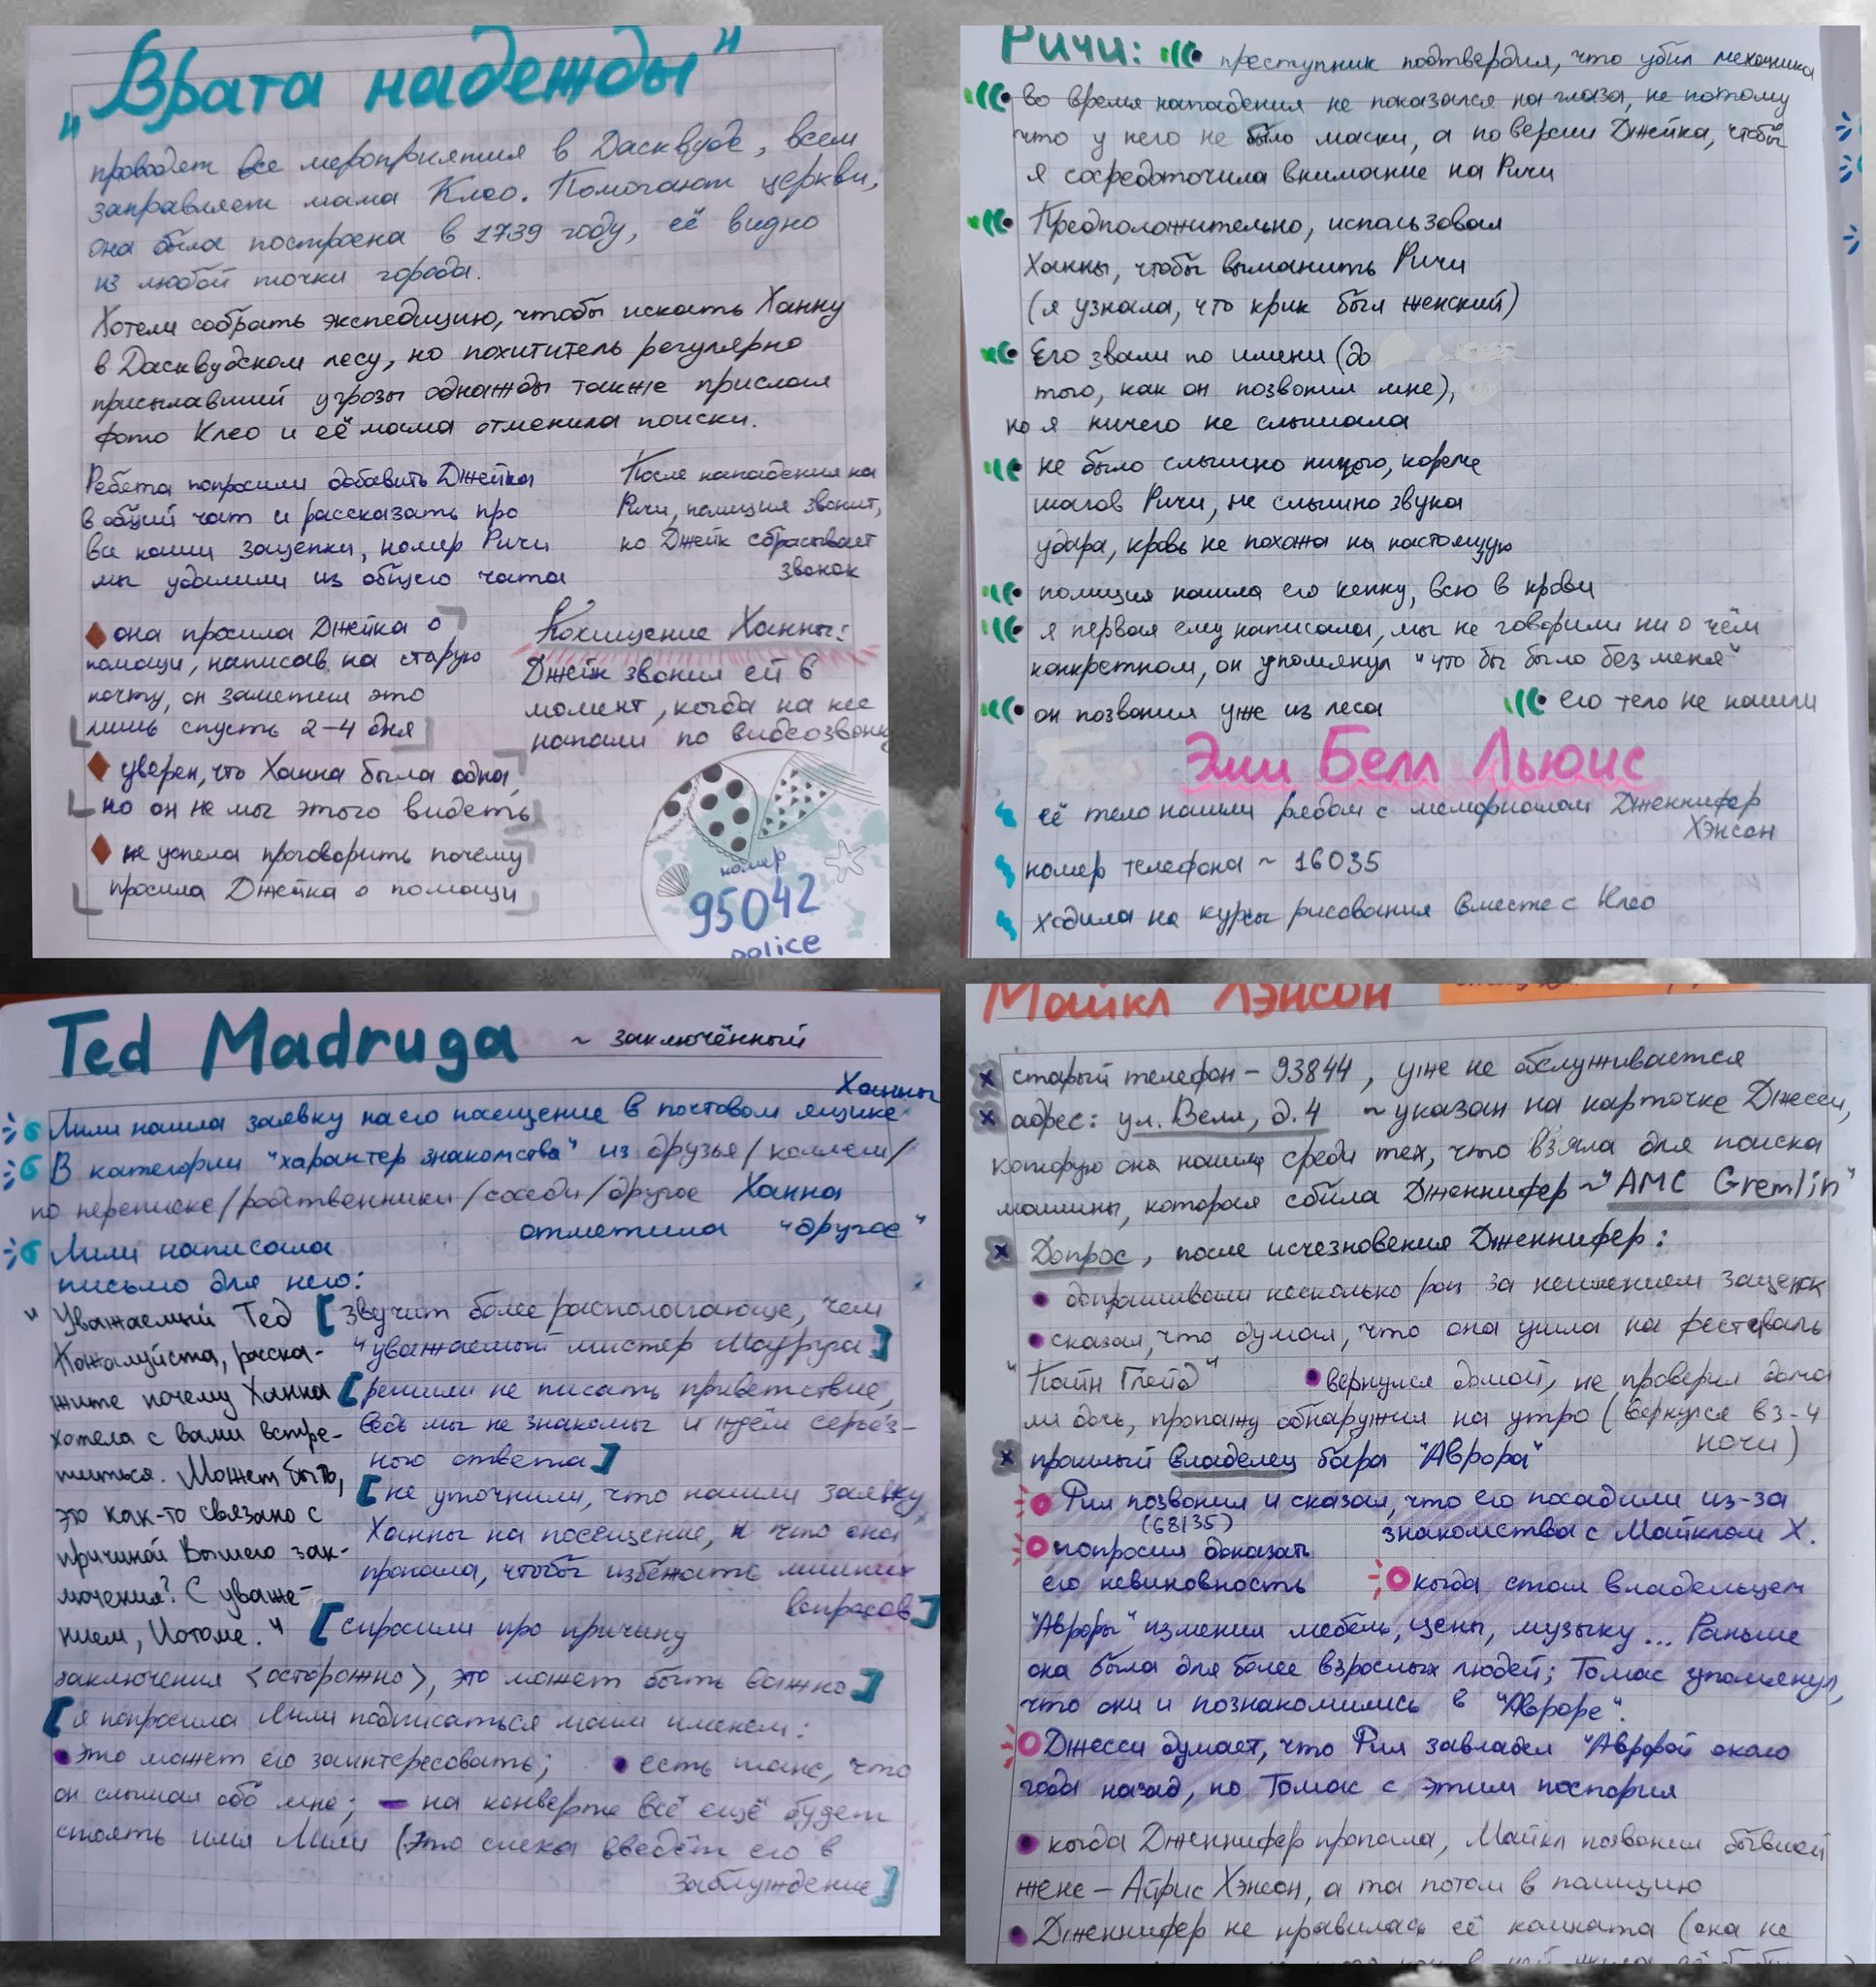 „Врата надежды"
проводят все мероприятия в Дасквуде, всем
заправляет мама Клео. Помогают церкви,
она была построена в 1739 году, её видно
из любой точки города.
Хотели собрать экспедицию, чтобы искать Ханну
в Дасквудском лесу, но похититель регулярно
присылавший угрозы однажды также прислал
фото Клео и её мама отменила поиски.
Ребята попросили добавить Джейка
в общий чат и рассказать про
все наши зацепки, номер Ричи
мы удалили из общего чата
После нападения на
Ричи, полиция звонит,
но Джейк сбрасывает
звонок
она просила Джейка о
помощи, написав на старую
почту, он заметил это
лишь спустя 2-4 дня
уверен, что Ханна была одна,
но он не мог этого видеть
не успела проговорить почему
просила Джейка о помощи
Похищение Ханны:
Джейк звонил ей в
момент, когда на нее
напали по видеозвонку
номер
95042
police
Ричи:
преступник подтвердил, что убил механика
во время нападения не показался на глаза, не потому
что у него не было маски, а по версии Джейка, чтобы
я сосредоточила внимание на Ричи
Предположительно, использовал
Ханну, чтобы выманить Ричи
(я узнала, что крик был женский)
Его звали по имени (до
того, как он позвонил мне),
но я ничего не слышала
не было слышно ничего, кроме
шагов Ричи, не слышно звука
удара, кровь не похожа на настоящую
полиция нашла его кепку, всю в крови
я первая ему написала, мы не говорили ни о чём
конкретном, он упомянул "что бы было без меня"
он позвонил уже из леса
его тело не нашли
Эми Белл Льюис
её тело нашли рядом с мемориалом Дженнифер
Хэнсон
номер телефона ~ 16035
ходила на курсы рисования вместе с Клео
Ted Madruga ~ заключённый
Ханны
Лили нашла заявку на его посещение в почтовом ящике
В категории "характер знакомства" из друзья/коллеги/
по переписке/родственники/соседи/другое Ханна
отметила "другое"
Лили написала
письмо для него:
" Уважаемый Тед
Пожалуйста, расска-
жите почему Ханна
хотела с вами встре-
титься. Может быть,
это как-то связано с
причиной Вашего зак-
лючения? С уваже-
нием, Иотоме."
[звучит более располагающе, чем
"уважаемый мистер Мадруга]
[решили не писать приветствие,
ведь мы не знакомы и ждём серьёз-
ного ответа]
[не уточнили, что нашли заявку
Ханны на посещение, и что она
пропала, чтобы избежать лишних
вопросов]
[спросили про причину
заключения <осторожно>, это может быть важно]
[я попросила Лили подписаться моим именем:
это может его заинтересовать;
есть шанс, что
он слышал обо мне; — на конверте всё ещё будет
стоять имя Лили (это слегка введёт его в
заблуждение]
Майкл Хэнсон
старый телефон - 93844, уже не обслуживается
адрес: ул. Велл, д.4 ~ указан на карточке Джесси,
которую она нашла среди тех, что взяла для поиска
машины, которая сбила Дженнифер ~ "AMC Gremlin"
Допрос, после исчезновения Дженнифер:
допрашивали несколько раз за неимением зацепок
сказал, что думал, что она ушла на фестиваль
"Пайн Глейд"
вернулся домой, не проверил дома
ли дочь, пропажу обнаружил на утро (вернулся в 3-4
ночи)
прошлый владелец бара "Аврора"
Фил позвонил и сказал, что его посадили из-за
(68135)
знакомства с Майклом Х.
попросил доказать
его невиновность
когда стал владельцем
"Авроры" изменил мебель, цены, музыку... Раньше
она была для более взрослых людей; Томас упомянул,
что они и познакомились в "Авроре".
Джесси думает, что Фил завладел "Авророй около
года назад, но Томас с этим поспорил
когда Дженнифер пропала, Майкл позвонил бывшей
жене - Айрис Хэнсон, а та потом в полицию
Дженнифер не нравилась её комната (она не